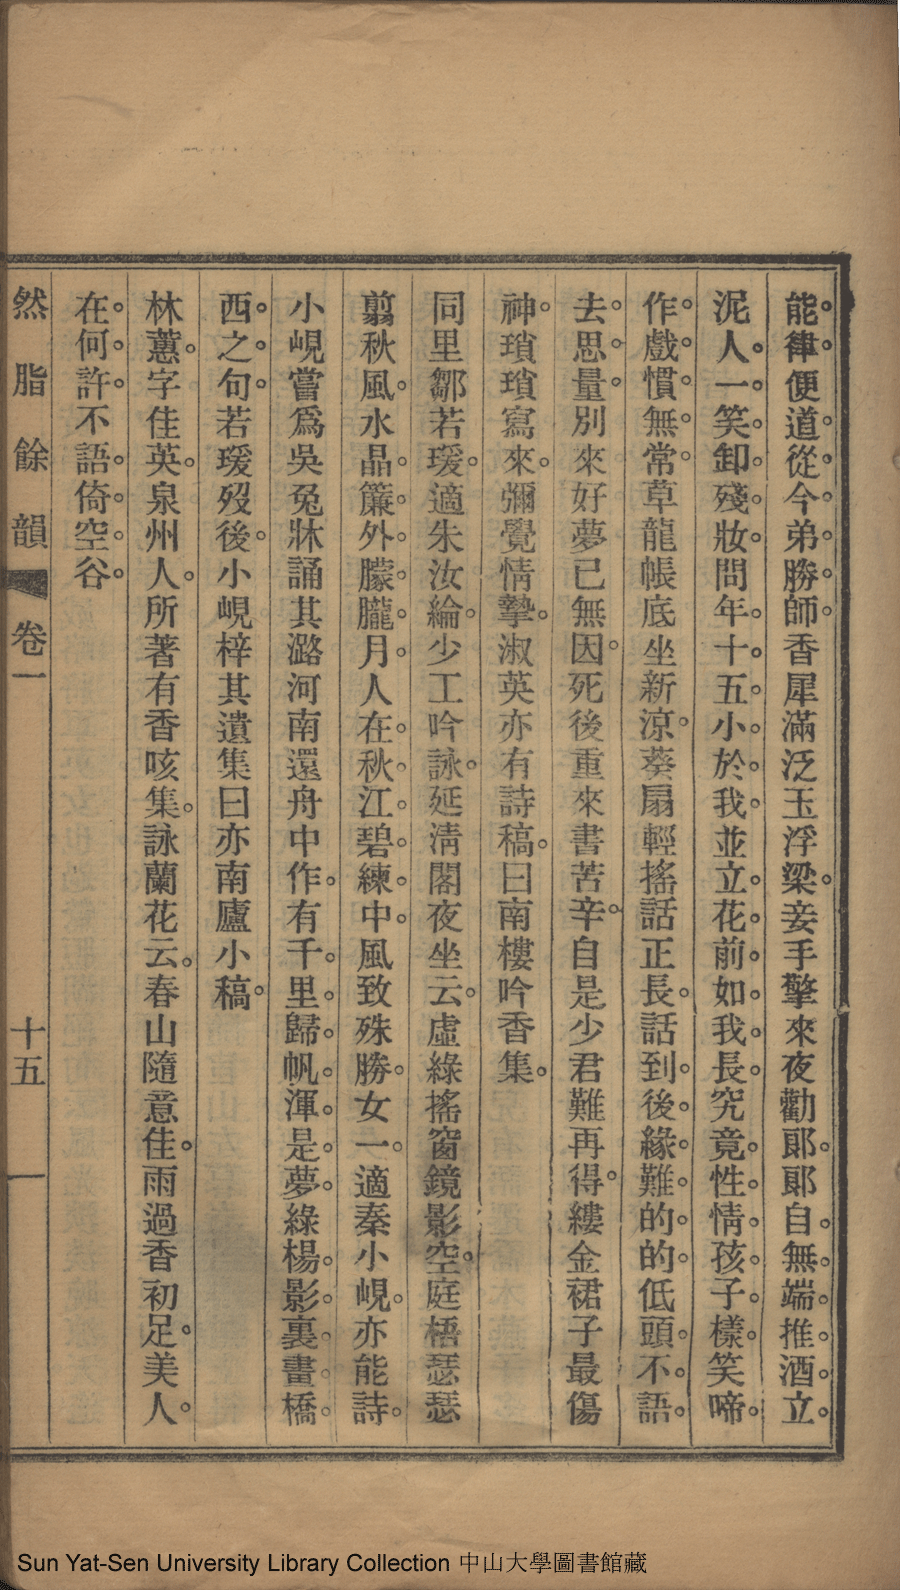 能律便道從今弟勝師香犀滿泛玉浮梁妾手擎來夜勸郞郞自無端推酒立
泥人一笑卸殘妝問年十五小於我並立花前如我長究竟性情孩子樣笑啼
作戲慣無常草龍帳底坐新涼葵扇輕搖話正長話到後緣難的的低頭不語
去思量別來好夢已無因死後重來書苦辛自是少君難再得縷金裙子最傷
神瑣瑣寫來彌覺情摯淑英亦有詩稿曰南樓吟香集
同里鄒若瑗適朱汝綸少工吟詠延淸閣夜坐云虛綠搖窗鏡影空庭梧瑟瑟
翦秋風水晶簾外朦朧月人在秋江碧練中風致殊勝女一適秦小峴亦能詩
小峴嘗爲吳兔牀誦其潞河南還舟中作有千里歸帆渾是夢綠楊影裏畫橋
西之句若瑗歿後小峴梓其遺集曰亦南廬小稿
林蕙字佳英泉州人所著有香咳集詠蘭花云春山隨意佳雨過香初足美人
在何許不語倚空谷
然脂餘韻 卷一 十五
Sun Yat-Sen University Library Collection 中山大學圖書館藏